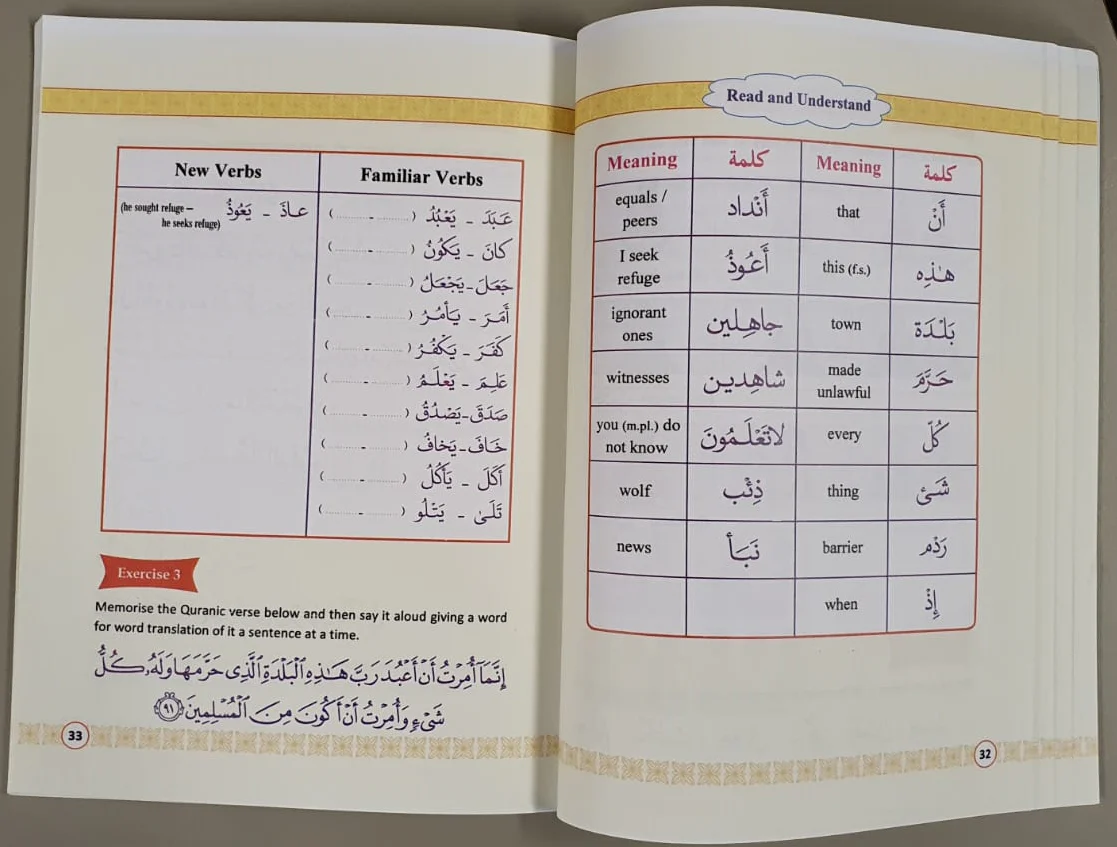 Read and Understand
كلمة Meaning كلمة Meaning
أَنْ that أَنْداد equals / peers
هـٰذِهِ this (f.s.) أَعُوذُ I seek refuge
بَلْدَة town جاهِلين ignorant ones
حَرَّمَ made unlawful شاهِدين witnesses
كُلّ every لاتَعْلَمُونَ you (m.pl.) do not know
شَئ thing ذِئْب wolf
رَدْم barrier نَبَأ news
إِذْ when
32
Familiar Verbs New Verbs
عَبَدَ - يَعْبُدُ (............ - ............) عاذَ - يَعُوذُ (he sought refuge – he seeks refuge)
كانَ - يَكُونُ (............ - ............)
جَعَلَ-يَجْعَلُ (............ - ............)
أَمَرَ - يَأمُرُ (............ - ............)
كَفَرَ - يَكْفُرُ (............ - ............)
عَلِمَ - يَعْلَمُ (............ - ............)
صَدَقَ-يَصْدُقُ (............ - ............)
خَافَ-يَخافُ (............ - ............)
أَكَلَ - يَأكُلُ (............ - ............)
تَلَىٰ - يَتْلُو (............ - ............)
Exercise 3
Memorise the Quranic verse below and then say it aloud giving a word
for word translation of it a sentence at a time.
إِنَّمَآ أُمِرْتُ أَنْ أَعْبُدَ رَبَّ هَـٰذِهِ ٱلْبَلْدَةِ ٱلَّذِى حَرَّمَهَا وَلَهُۥ كُلُّ
شَىْءٍ وَأُمِرْتُ أَنْ أَكُونَ مِنَ ٱلْمُسْلِمِينَ ٩١
33